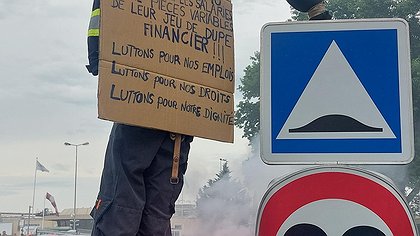 LES SALARIÉS
DE PIÈCES VARIABLES
DE LEUR JEU DE DUPE
FINANCIER !!!
LUTTONS POUR NOS EMPLOIS
LUTTONS POUR NOS DROITS
LUTTONS POUR NOTRE DIGNITÉ